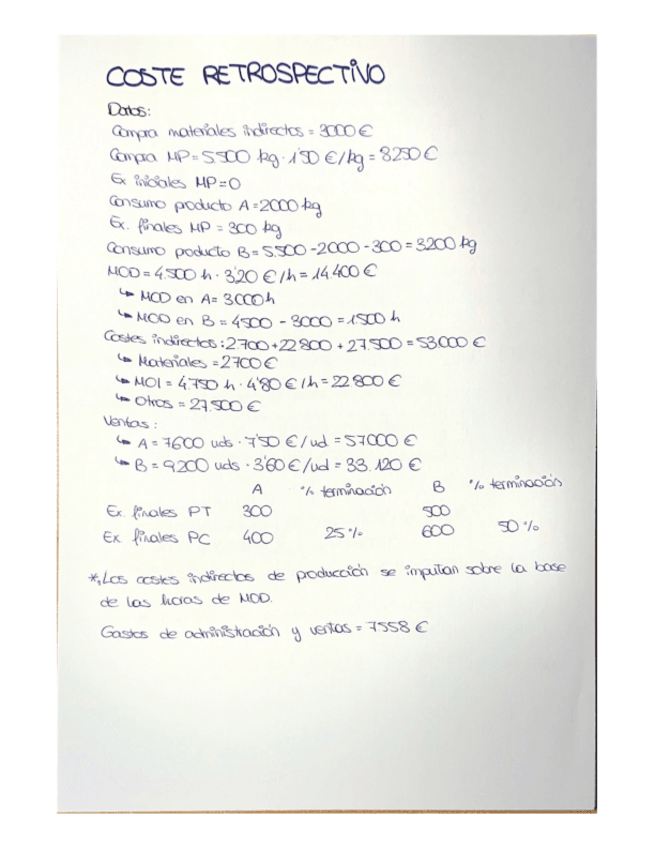 COSTE RETROSPECTIVO
Datos:
Compra materiales indirectos = 3000 €
Compra MP = 5.500 kg · 1'50 €/kg = 8250 €
Ex iniciales MP = 0
Consumo producto A = 2000 kg
Ex. finales MP = 300 kg
Consumo producto B = 5.500 - 2000 - 300 = 3.200 kg
MOD = 4.500 h · 3'20 €/h = 14.400 €
↳ MOD en A = 3000 h
↳ MOD en B = 4500 - 3000 = 1500 h
Costes indirectos: 2.700 + 22.800 + 27.500 = 53.000 €
↳ Materiales = 2700 €
↳ MOI = 4.750 h · 4'80 €/h = 22.800 €
↳ Otros = 27.500 €
Ventas:
↳ A = 7600 uds · 7'50 €/ud = 57.000 €
↳ B = 9200 uds · 3'60 €/ud = 33.120 €
A % terminación B % terminación
Ex. finales PT 300 500
Ex. finales PC 400 25% 600 50%
*Los costes indirectos de producción se imputan sobre la base
de las horas de MOD.
Gastos de administración y ventas = 7558 €